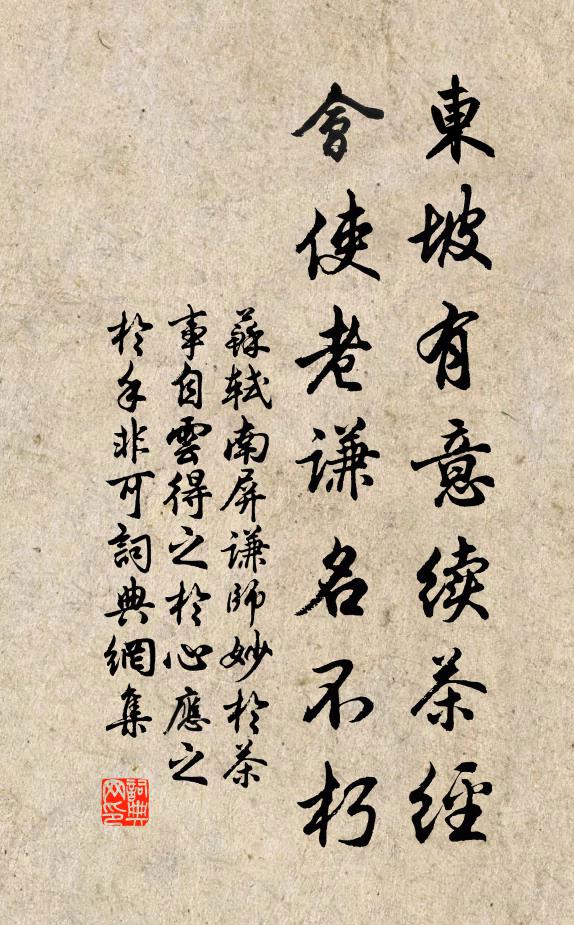 東坡有意續茶經
會使老謙名不朽
蘇軾南屏謙師妙於茶
事自雲得之於心應之
於手非可詞典網集
詞典网印